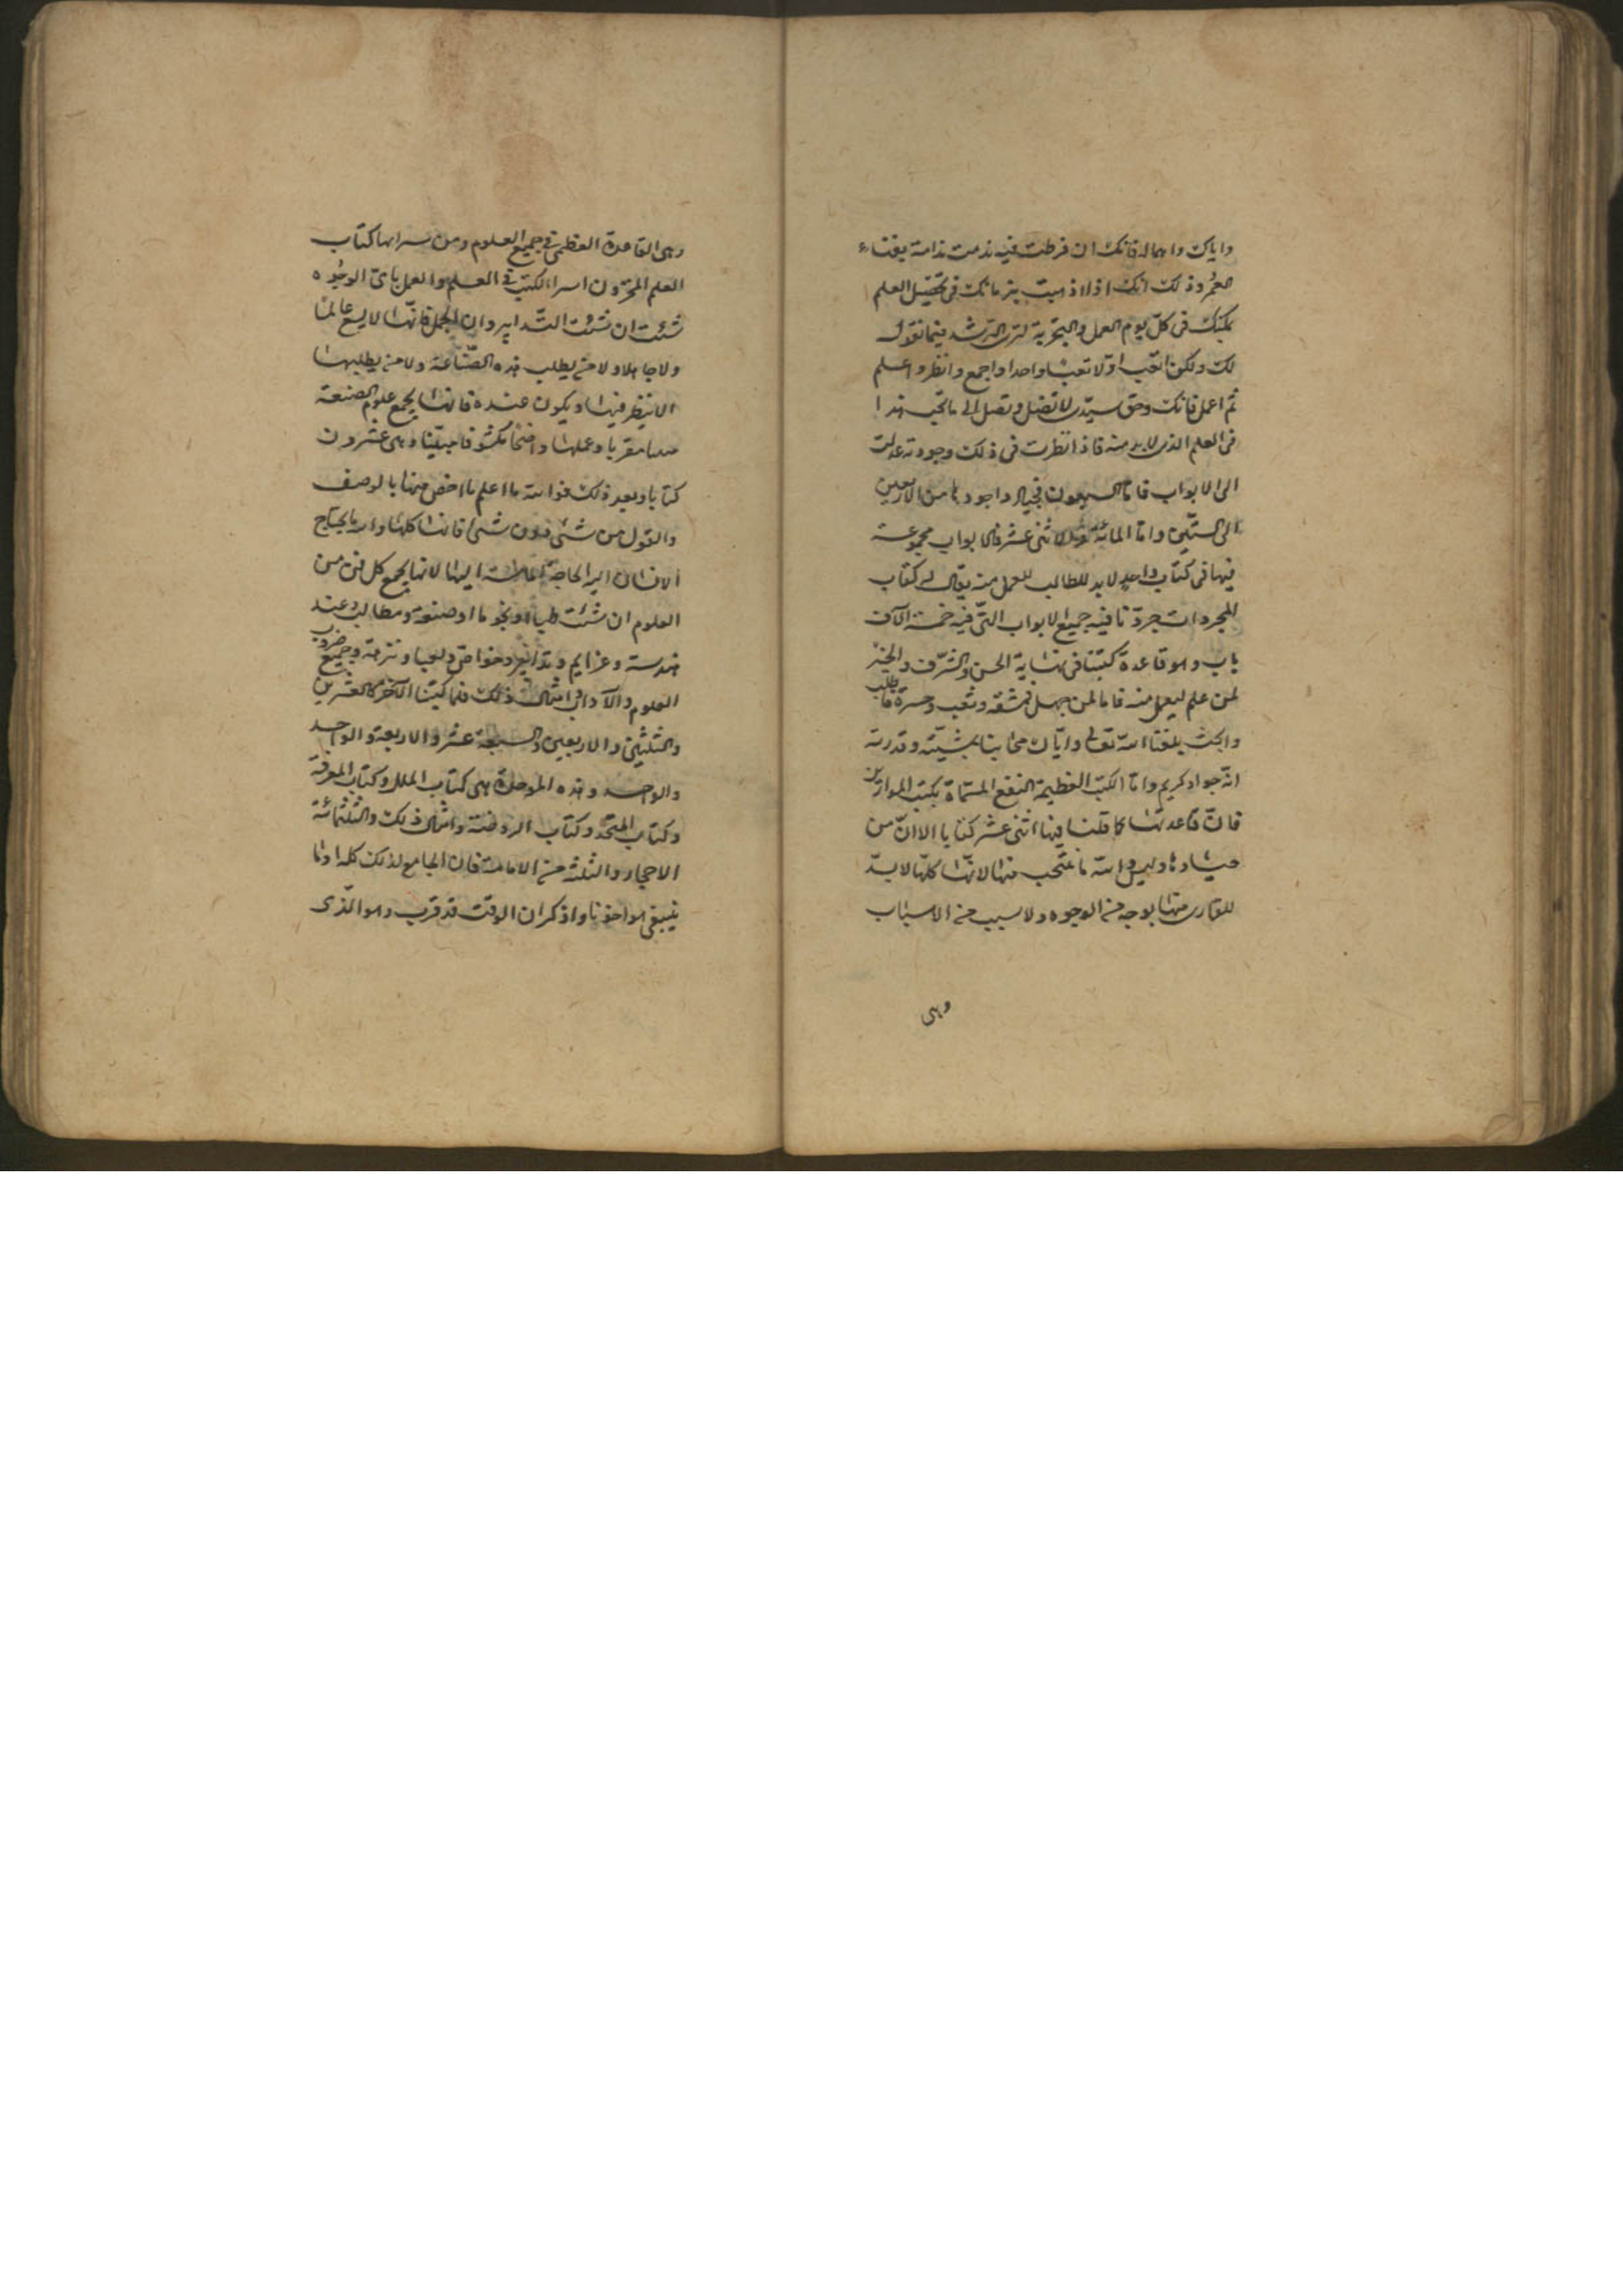 واياك واهماله فانك ان فرطت فيه ندمت ندامة يفناء
العمر وذلك انك اذا اذهبت زمانك فى تحصيل العلم
يمكنك فى كل يوم العمل والتجربة لترى الرشد فيما نقول
لك ولكن اتعب اولا تعبا واحدا واجمع وانظر واعلم
ثم اعمل فانك وحق سيدى لا تصل وتصل الى ما تحب هذا
فى العلم الذى لابد منه فاذا نظرت فى ذلك وجودته عدلت
الى الابواب فاما السبعون فجياد واجودها من الاربعين
الى الستين واما المائة والاثنى عشر فالابواب مجموعة
فيها فى كتاب واحد لابد للطالب للعمل منه يقال له كتاب
المجردات جردنا فيه جميع الابواب التى فيه خمسة آلاف
باب وهو قاعدة كتبنا فى نهاية الحسن والشرف والخير
لمن علم ليعمل منه فاما لمن جهل فمشقة وتعب وحسرة فاطلب
وابحث بلغنا الله تعالى وايان محابنا بمشيته وقدرته
انه جواد كريم واما الكتب العظيمة النفع المسماة بكتب الموازين
فان قاعدتها كما قلنا فيها اثنى عشر كتابا الا ان من
جيادها وليس والله ما ننتخب منها لانها كلها لابد
للقارى منها بوجه من الوجوه ولا سبب من الاسباب
وهى
وهى القاعدة العظمى فى جميع العلوم ومن سرايها كتاب
العلم المخزون اسرا الكتب فى العلم والعمل باى الوجوه
شئت ان شئت التدابير وان الجمل فانها لا يسع عالما
ولا جاهلا ولا من يطلب هذه الصناعة ولا من يطلبها
الا ينظر فيها ويكون عنده فانها يجمع علوم الصنعة
مقربا وعملها واضحا مكشوفا مبينا وهى عشرون
كتابا وبعد ذلك فوالله ما اعلم ما اخص منها بالوصف
والقول من شئ دون شئ فانها كلها وارد ما يحتاج
الانسان اليه الحاجة الماسة اليها لانها يجمع كل فن من
العلوم ان شئت طبا او نجوما او صنعة ومطالب وعند
هندسة وعزايم وتدابير وخواص ولعبا ونزهة وجميع ضروب
العلوم والآداب وامثال ذلك فاما كتبنا الآخر كالعشرين
والثلثين والاربعين والسبعة عشر والاربعة والواحد
والواحد وهذه الموحدة هى كتاب الملك وكتاب المعرفة
وكتاب المتحد وكتاب الروضة وامثال ذلك والثلثمائة
الاحجار والثلثة من الامامة فان الجامع لذلك كله اونا
ينبغى اواخونا واذكر ان الوقت قد قرب وهو الذى